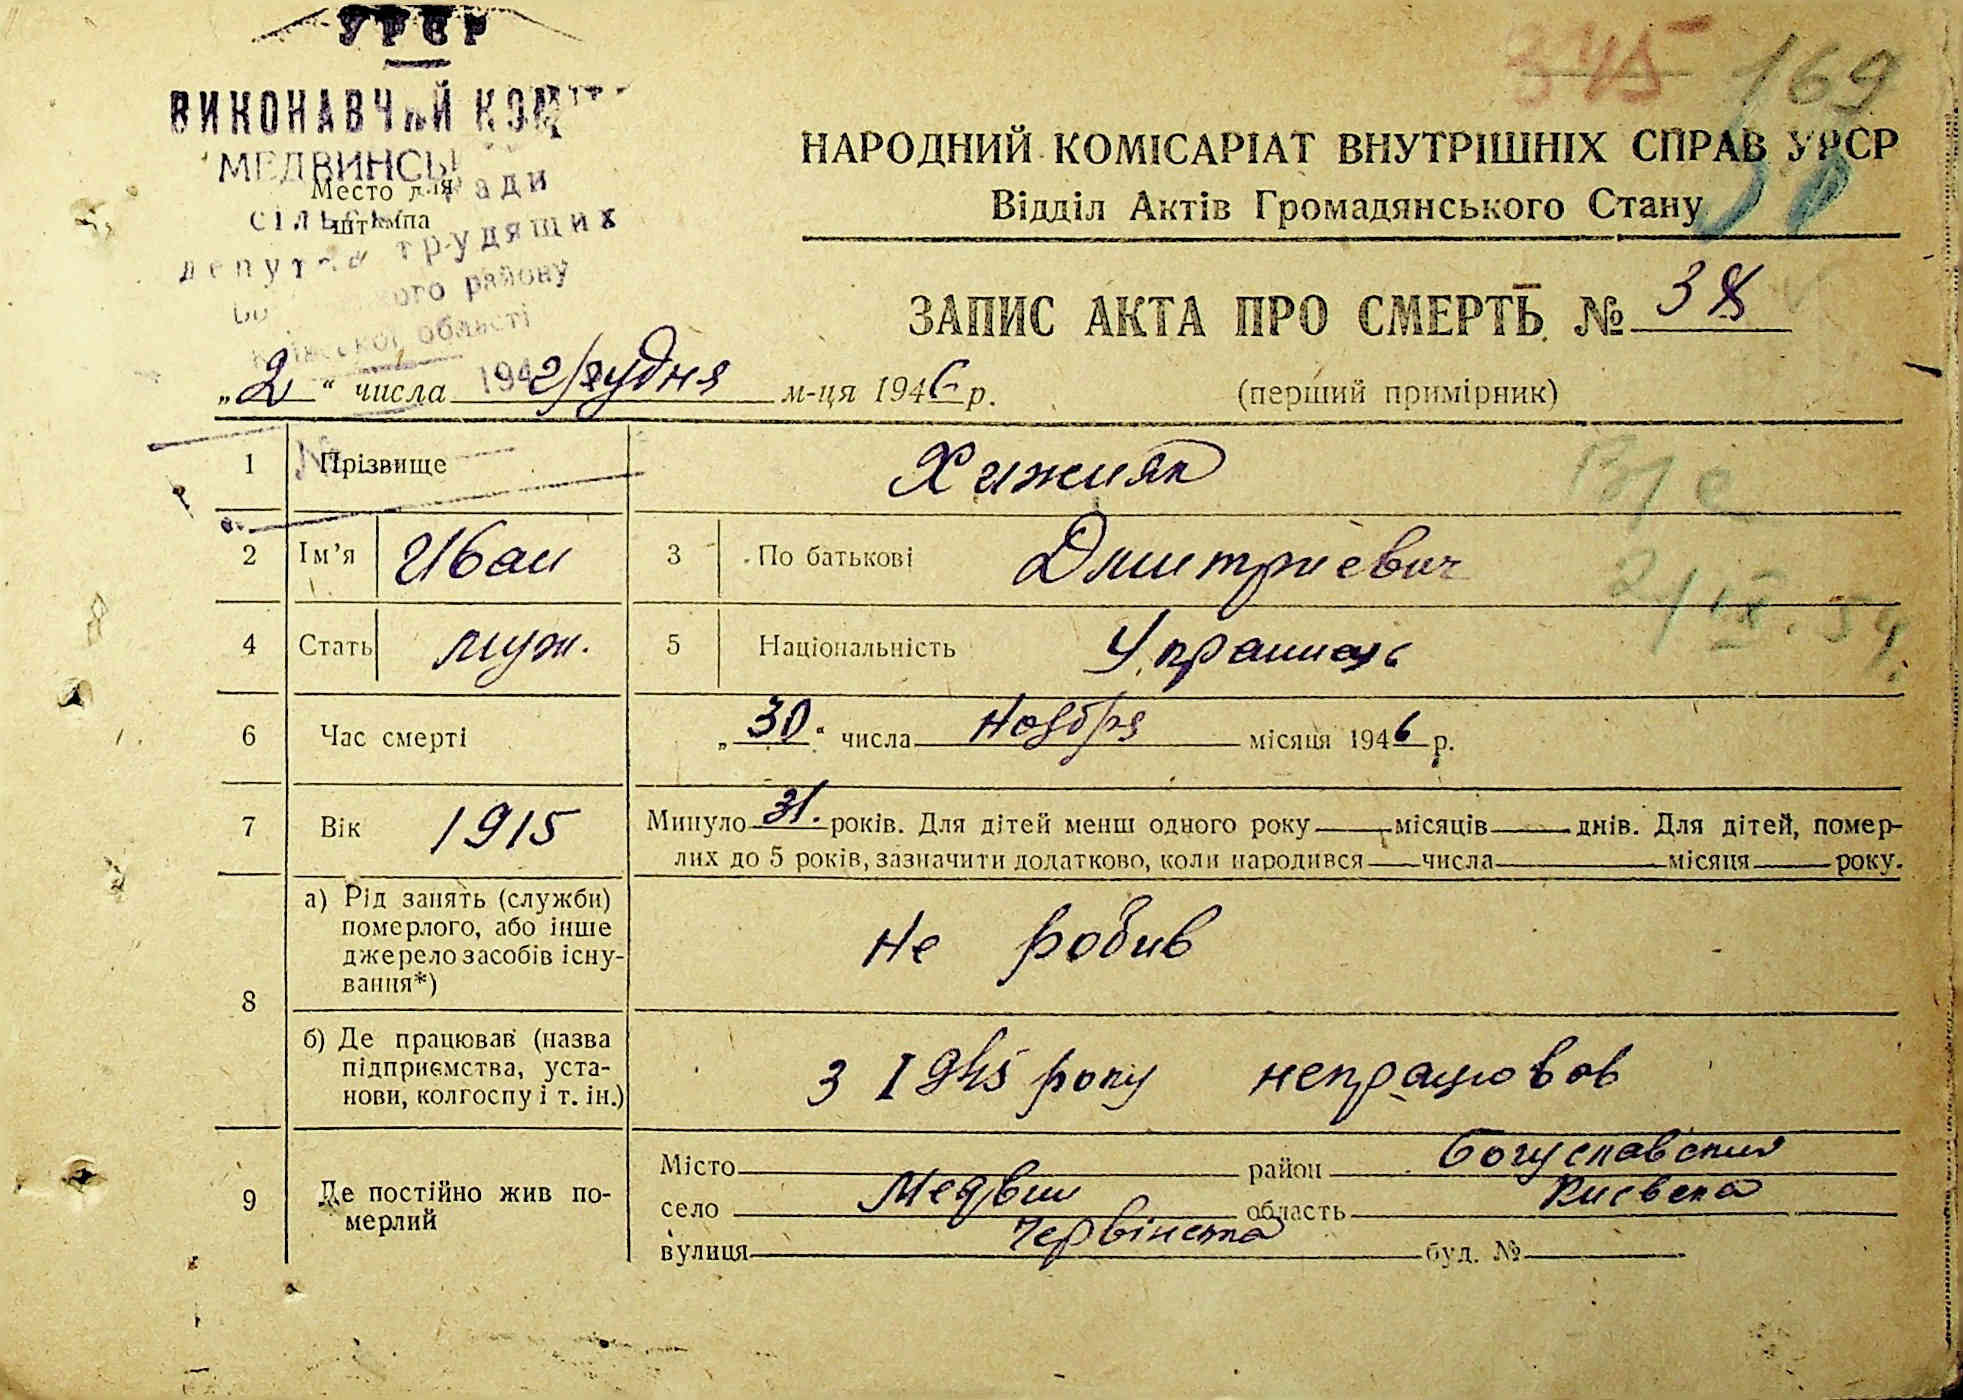 УРСР
ВИКОНАВЧИЙ
МЕДВИНСЬ
Место для
штампа
ради
трудящих
ого району
області
345
169
НАРОДНИЙ КОМІСАРІАТ ВНУТРІШНІХ СПРАВ УРСР
Відділ Актів Громадянського Стану
ЗАПИС АКТА ПРО СМЕРТЬ №38
„2“ числа грудня м-ця 1946 р.
(перший примірник)
1 Прізвище Хижняк
2 Ім’я Иван 3 По батькові Дмитриевич
4 Стать муж. 5 Національність Украинець
6 Час смерті „30“ числа Ноября місяця 1946 р.
7 Вік 1915 Минуло 31. років. Для дітей менш одного року місяців днів. Для дітей, помер-
лих до 5 років, зазначити додатково, коли народився числа місяця року.
8 а) Рід занять (служби)
померлого, або інше
джерело засобів існу-
вання*)
Не робив
б) Де працював (назва
підприємства, уста-
нови, колгоспу і т. ін.)
З 1945 року непрацювов
9 Де постійно жив по-
мерлий
Місто район Богуславский
село Медвин область Киевска
вулиця буд. №